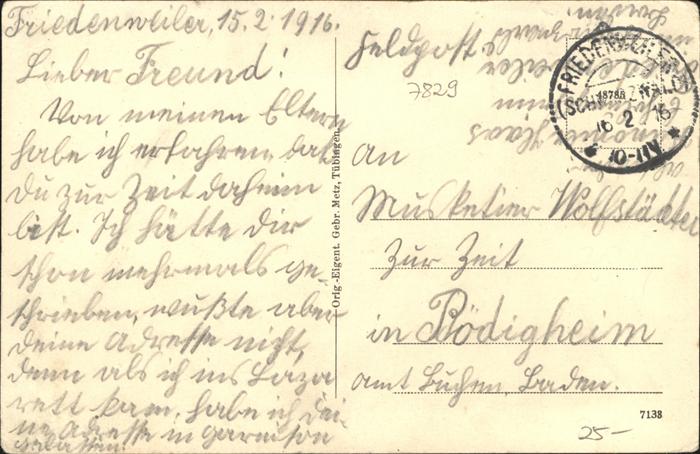 Friedenweiler, 15.2.1916.
Lieber Freund!
Von meinen Eltern
habe ich erfahren, daß
Du zur Zeit daheim
bist. Ich hätte Dir
schon mehrmals ge-
schrieben, wußte aber
deine Adresse nicht,
denn als ich ins Laza
rett kam, habe ich dei-
ne Adresse in Garnison
gelassen.
Orig.-Eigent. Gebr. Metz, Tübingen.
Feldpost.
7829
FRIEDENWEILER
(SCHWARZWALD)
16 2 16
10-11V
An
Musketier Wolfstädter
Zur Zeit
in Bödigheim
Amt Buchen, Baden.
7138
25-